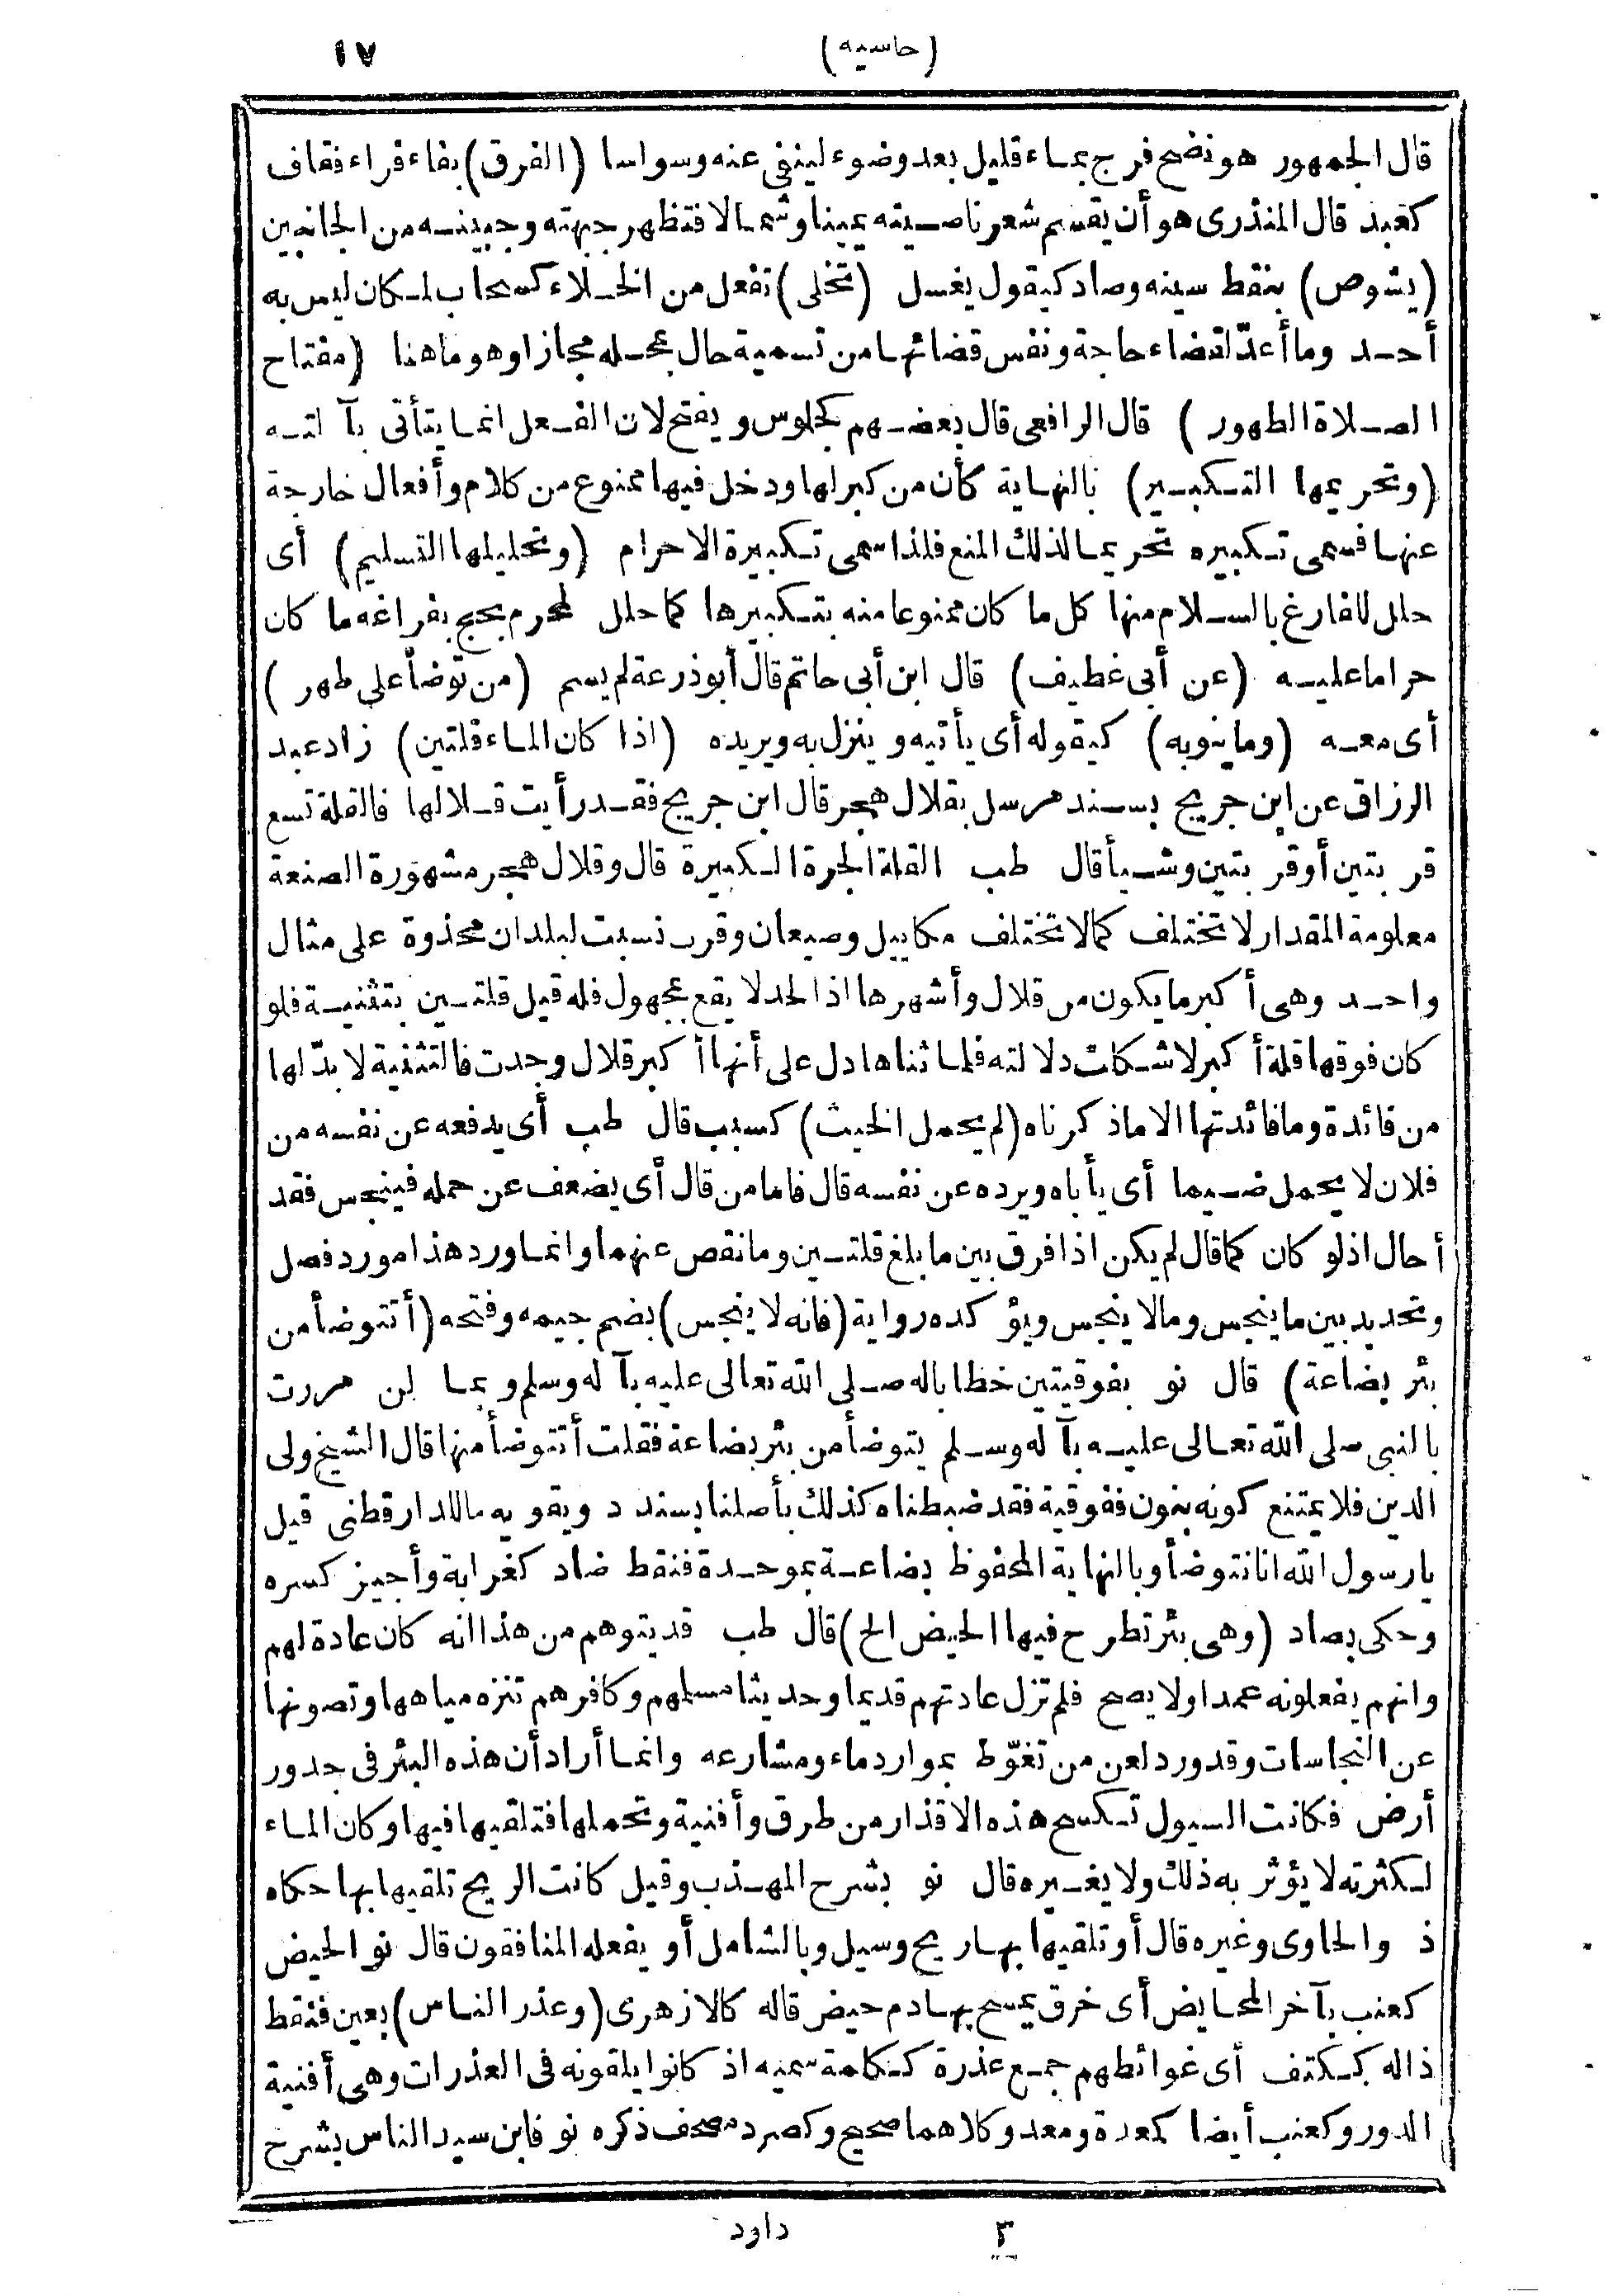 (حاسيه) ١٧
قال الجمهور هو نضح فرج بماء قليل بعد وضوء لينفي عنه وسواسا (الفرق) بفاء فراء فقاف
كعبد قال المنذرى هو أن يقسم شعر ناصيته يمينا وشمالا فتظهر جبهته وجبينه من الجانبين
(يشوص) بنقط سينه وصاد كيقول يغسل (تخلى) تفعل من الخلاء كسحاب لمكان ليس به
أحد وما أعدّ لقضاء حاجة ونفس قضائها من تسمية حال بمحله مجازا وهو ما هنا (مفتاح
الصلاة الطهور) قال الرافعى قال بعضهم كجلوس ويفتح لان الفعل انما يتأتى بآ لته
(وتحريمها التكبير) بالنهاية كأن من كبر لها ودخل فيها ممنوع من كلام وأفعال خارجة
عنها فسمى تكبيره تحريما لذلك المنع فلذا سمى تكبيرة الاحرام (وتحليلها التسليم) أى
حلل للفارغ بالسلام منها كل ما كان ممنوعا منه بتكبيرها كما حلل لمحرم بحج بفراغه ما كان
حراما عليه (عن أبى غطيف) قال ابن أبى حاتم قال أبو ذرعة لم يسم (من توضأ على طهر)
أى معه (وما ينوبه) كيقوله أى يأتيه وينزل به ويريده (اذا كان الماء قلتين) زاد عبد
الرزاق عن ابن جريج بسند مرسل بقلال هجر قال ابن جريج فقد رأيت قلالها فالقلة تسع
قربتين أو قربتين وشيأ قال طب القلة الجرة الكبيرة قال وقلال هجر مشهورة الصنعة
معلومة المقدار لا تختلف كما لا تختلف مكاييل وصيعان وقرب نسبت لبلدان محذوة على مثال
واحد وهى أكبر ما يكون من قلال وأشهرها اذ الحد لا يقع بمجهول فله قيل قلتين بتثنية فلو
كان فوقها قلة أكبر لاشكلت دلالته فلما ثناها دل على أنها أكبر قلال وجدت فالتثنية لا بدّ لها
من فائدة وما فائدتها الا ما ذكرناه (لم يحمل الخبث) كسبب قال طب أى يدفعه عن نفسه من
فلان لا يحمل ضيما أى يأباه ويرده عن نفسه قال فاما من قال أى يضعف عن حمله فينجس فقد
أحال اذ لو كان كما قال لم يكن اذا فرق بين ما بلغ قلتين وما نقص عنهما وانما ورد هذا مورد فصل
وتحديد بين ما ينجس وما لا ينجس ويؤكده رواية (فانه لا ينجس) بضم جيمه وفتحه (أتتوضأ من
بئر بضاعة) قال نو بفوقيتين خطابا له صلى الله تعالى عليه بآ له وسلم وبما لن مررت
بالنبى صلى الله تعالى عليه بآ له وسلم يتوضأ من بئر بضاعة فقلت أتتوضأ منها قال الشيخ ولى
الدين فلا يمتنع كونه بنون ففوقية فقد ضبطناه كذلك بأصلنا بسند د ويقويه ما للدارقطنى قيل
يا رسول الله انا نتوضأ وبالنهاية المحفوظ بضاعة بموحدة فنقط ضاد كغرابة وأجيز كسره
وحكى بصاد (وهى بئر تطرح فيها الحيض الخ) قال طب قد يتوهم من هذا انه كان عادة لهم
وانهم يفعلونه عمدا ولا يصح فلم تزل عادتهم قديما وحديثا مسلمهم وكافرهم تنزه مياهها وتصونها
عن النجاسات وقد ورد لعن من تغوّط بموارد ماء ومشارعه وانما أراد أن هذه البئر فى جدور
أرض فكانت السيول تكسح هذه الاقذار من طرق وأفنية وتحملها فتلقيها فيها وكان الماء
لكثرته لا يؤثر به ذلك ولا يغيره قال نو بشرح المهذب وقيل كانت الريح تلقيها بها حكاه
ذ والحاوى وغيره قال أو تلقيها بها ريح وسيل وبالشامل أو يفعله المنافقون قال نو الحيض
كعنب بآخر المحايض أى خرق يمسح بها دم حيض قاله كالازهرى (وعذر الناس) بعين فنقط
ذاله ككتف أى غوائطهم جمع عذرة ككلمة سميه اذ كانوا يلقونه فى العذرات وهى أفنية
الدور وكعنب أيضا كمعدة ومعد وكلاهما صحيح وكصرد مصحف ذكره نو فابن سيد الناس بشرح
٣ داود